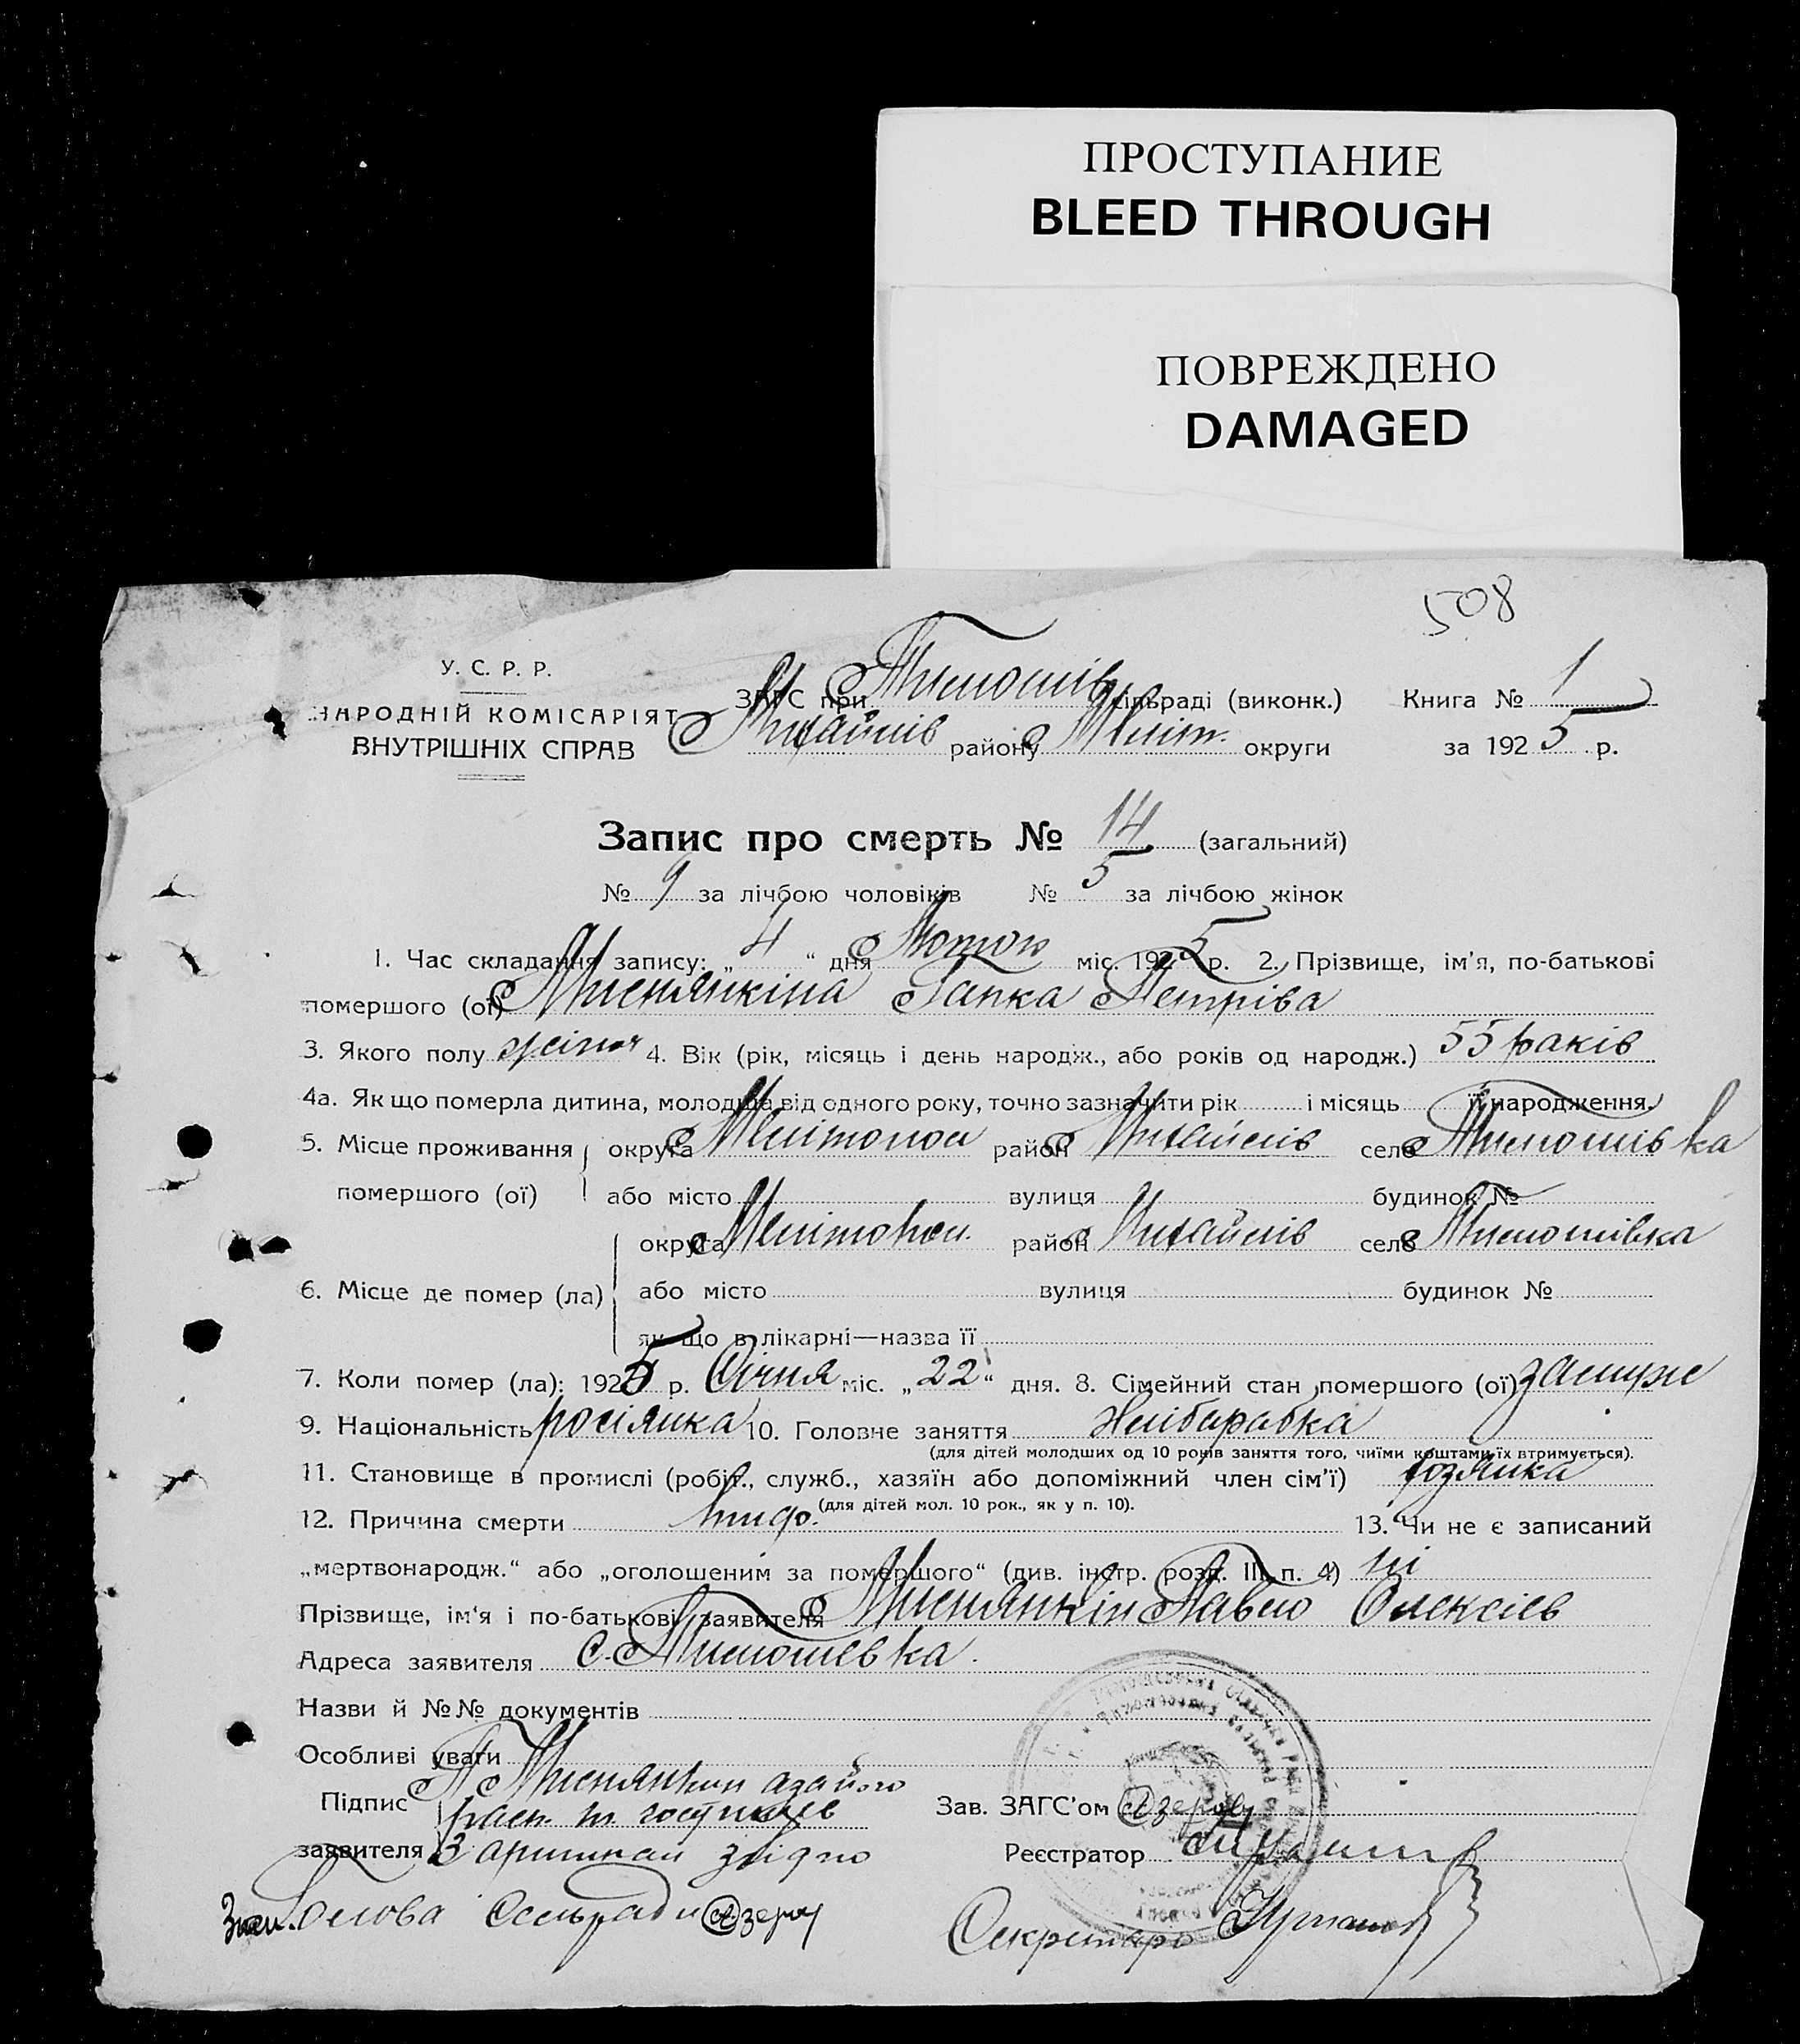 ПРОСТУПАНИЕ
BLEED THROUGH
ПОВРЕЖДЕНО
DAMAGED
508
У. С. Р. Р.
НАРОДНІЙ КОМІСАРІЯТ
ВНУТРІШНІХ СПРАВ
ЗАГС при Тимошів сільраді (виконк.) Книга № 1
Михайлів району Меліт. округи за 1925 р.
Запис про смерть № 14 (загальний)
№ 9 за лічбою чоловіків № 5 за лічбою жінок
1. Час складання запису: „ 4 “ дня Лютого міс. 1925 р. 2. Прізвище, ім'я, по-батькові
помершого (ої) Гапка Петрівa
3. Якого полу жіноч 4. Вік (рік, місяць і день народж., або років од народж.) 55 раків
4а. Як що померла дитина, молодша від одного року, точно зазначити рік і місяць її народження.
5. Місце проживання округа Мелітопол район Михайлів село Тимошівка
помершого (ої) або місто вулиця будинок №
округа Мелітопол. район Михайлів село Тимошівка
6. Місце де помер (ла) або місто вулиця будинок №
як що в лікарні—назва її
7. Коли помер (ла): 1925 р. Січня міс. „22“ дня. 8. Сімейний стан помершого (ої) замужн
9. Національність росіянка 10. Головне заняття Хлібаробка
(для дітей молодших од 10 років заняття того, чиїми коштами їх втримується).
11. Становище в промислі (робіт., служб., хазяїн або допоміжний член сім'ї) хозяйка
(для дітей мол. 10 рок., як у п. 10).
12. Причина смерти тиф. 13. Чи не є записаний
„мертвонародж.“ або „оголошеним за помершого“ (див. інстр. розд. III п. 4) ні
Прізвище, ім'я і по-батькові заявителя Павло Олексієв
Адреса заявителя с. Тимошевка.
Назви й №№ документів
Особливі уваги
Підпис
заявителя З аригиналом згідно
Зав. ЗАГС'ом Озеров
Реєстратор
Голова Сельради Озеров
Секретарь